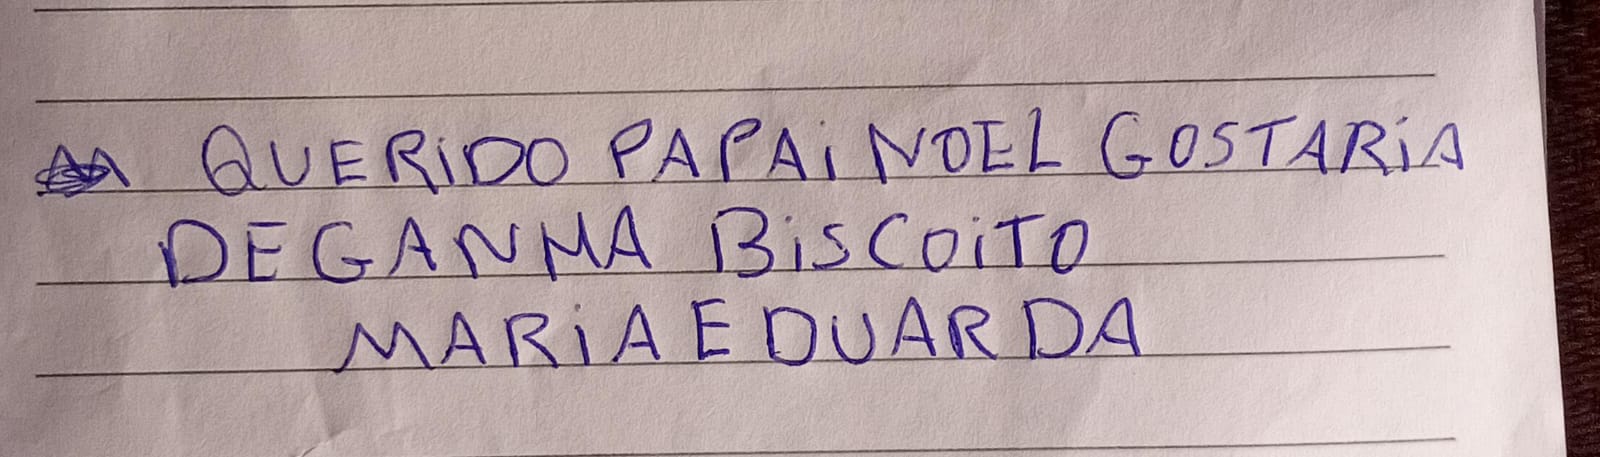 QUERIDO PAPAI NOEL GOSTARIA
DE GANHA BISCOITO
MARIA EDUARDA